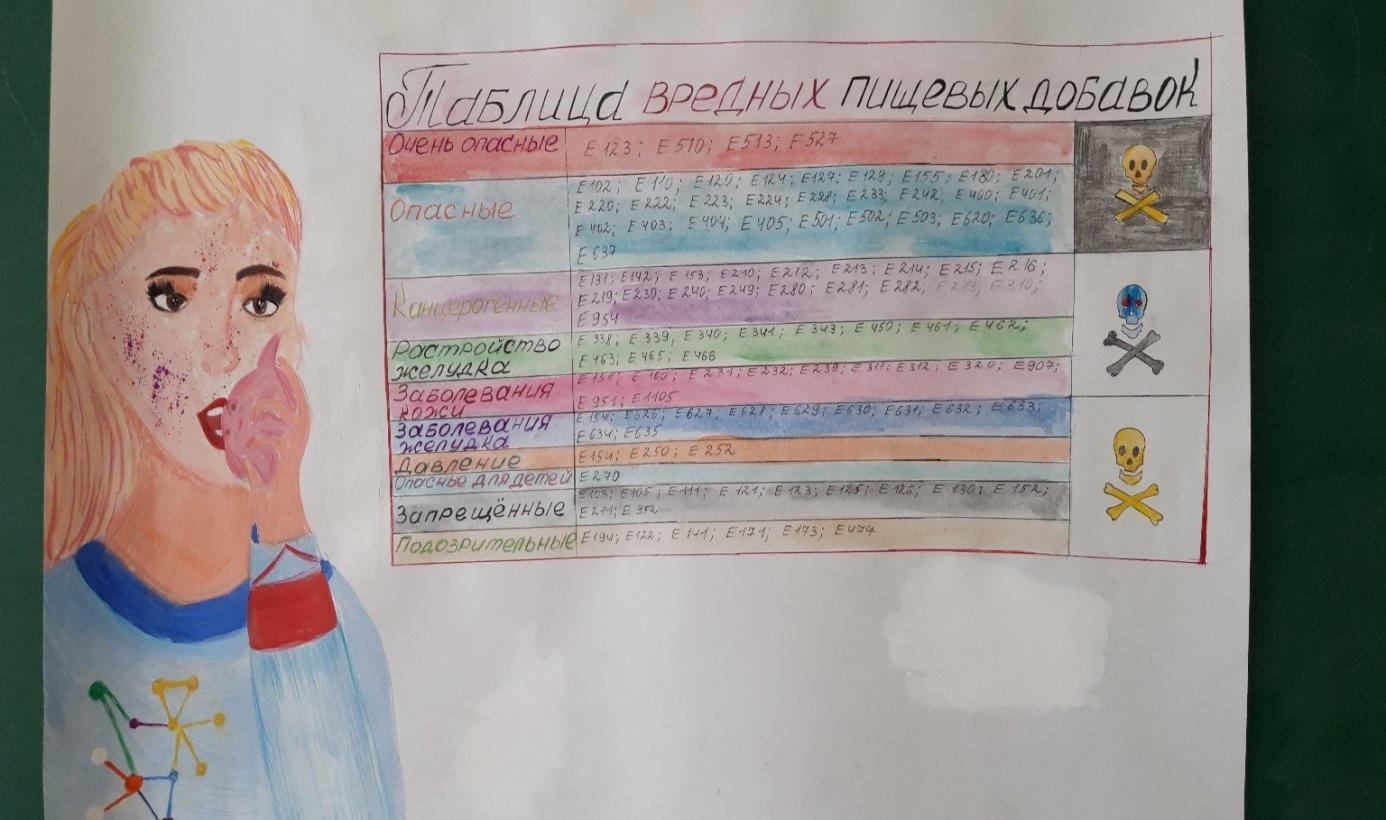 Таблица вредных пищевых добавок
Очень опасные
E 123; E 510; E 513; E 527
Опасные
E 102; E 110; E 120; E 124; E 127; E 129; E 155; E 180; E 201;
E 220; E 222; E 223; E 224; E 228; E 233; E 242; E 400; E 401;
E 402; E 403; E 404; E 405; E 501; E 502; E 503; E 620; E 636;
E 637
Канцерогенные
E 131; E 142; E 153; E 210; E 212; E 213; E 214; E 215; E 216;
E 219; E 230; E 240; E 249; E 280; E 281; E 282; E 283; E 310;
E 954
Растройство
желудка
E 338; E 339, E 340; E 341; E 343; E 450; E 461; E 462;
E 463; E 465; E 466
Заболевания
кожи
E 151; E 160; E 231; E 232; E 239; E 311; E 312; E 320; E 907;
E 951; E 1105
Заболевания
желудка
E 626; E 627, E 628; E 629; E 630; E 631; E 632; E 633;
E 634; E 635
Давление
E 154; E 250; E 252
Опасные для детей
E 270
Запрещённые
E 103; E 105; E 111; E 121; E 123; E 125; E 126; E 130; E 152;
E 211; E 952
Подозрительные
E 104; E 122; E 141; E 171; E 173; E 477